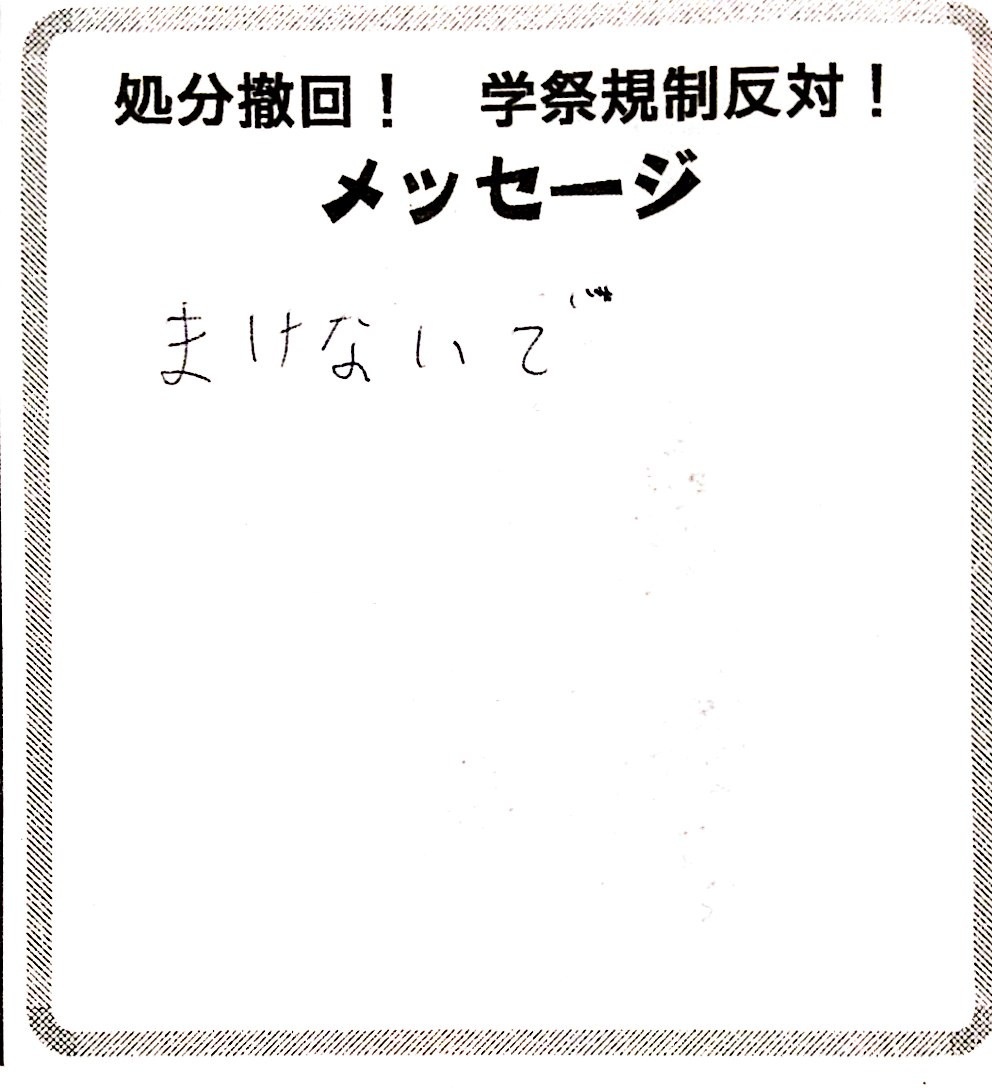 処分撤回！　学祭規制反対！
メッセージ
まけないで